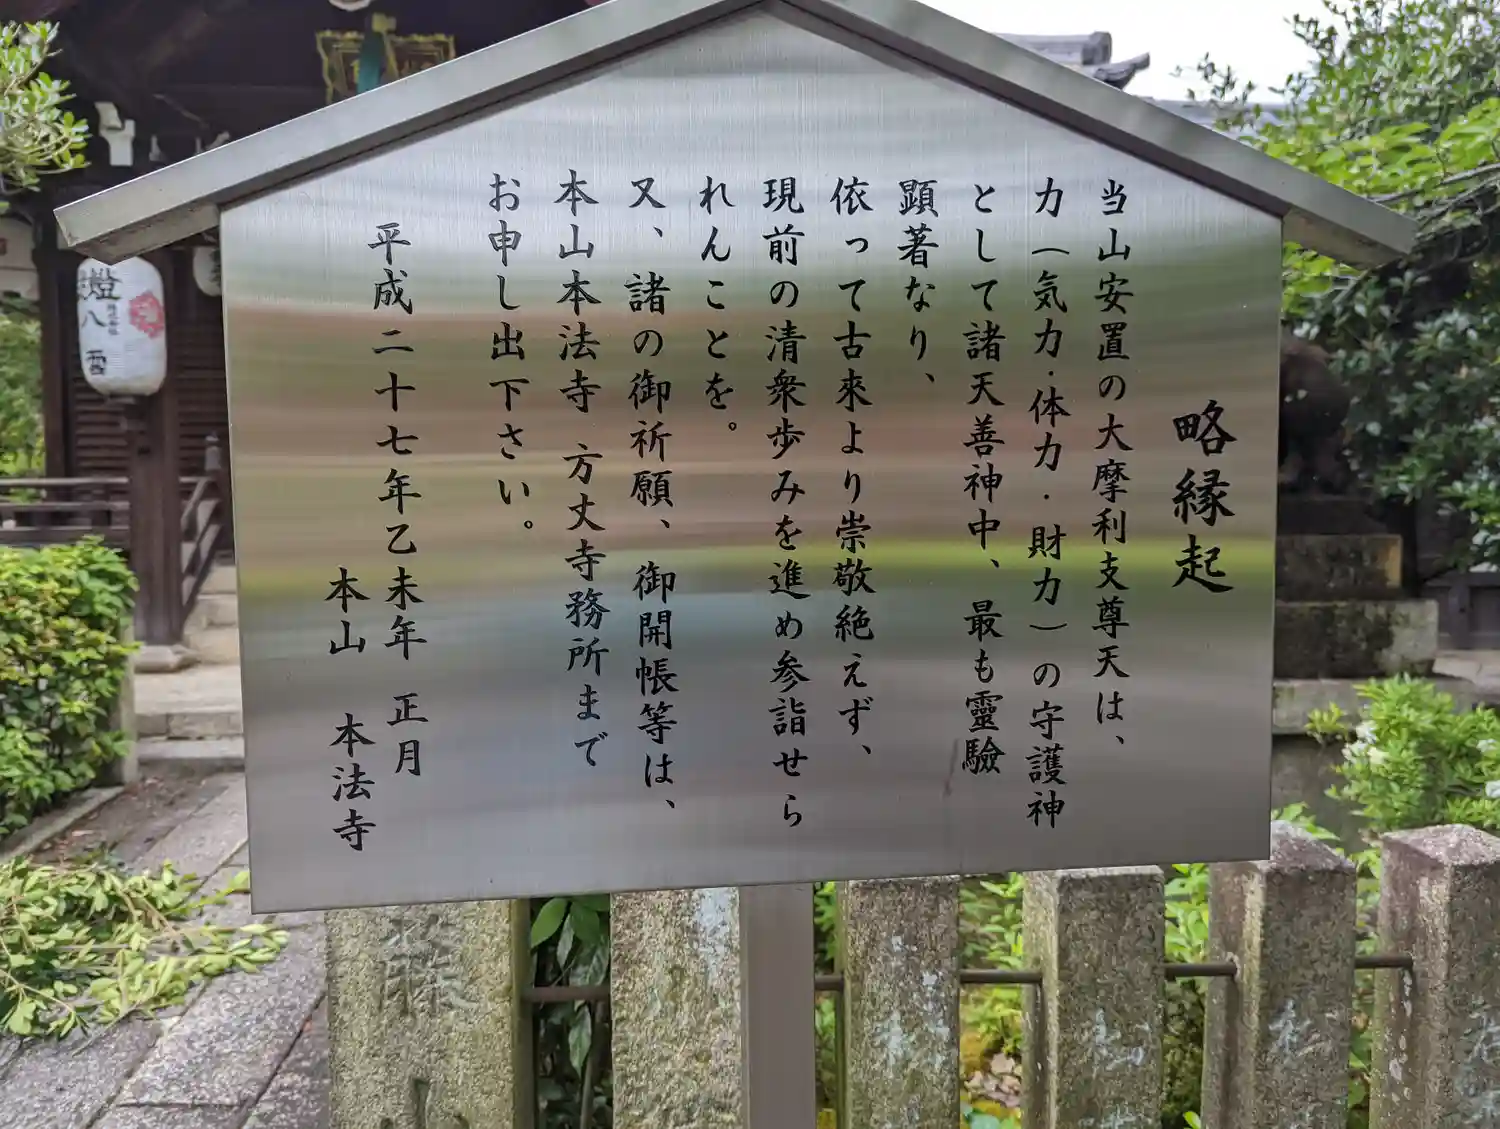 略縁起
当山安置の大摩利支尊天は、
力（気力・体力・財力）の守護神
として諸天善神中、最も靈驗
顕著なり、
依って古来より崇敬絶えず、
現前の清衆歩みを進め参詣せら
れんことを。
又、諸の御祈願、御開帳等は、
本山本法寺 方丈寺務所まで
お申し出下さい。
平成二十七年乙未年 正月
本山 本法寺
燈
八